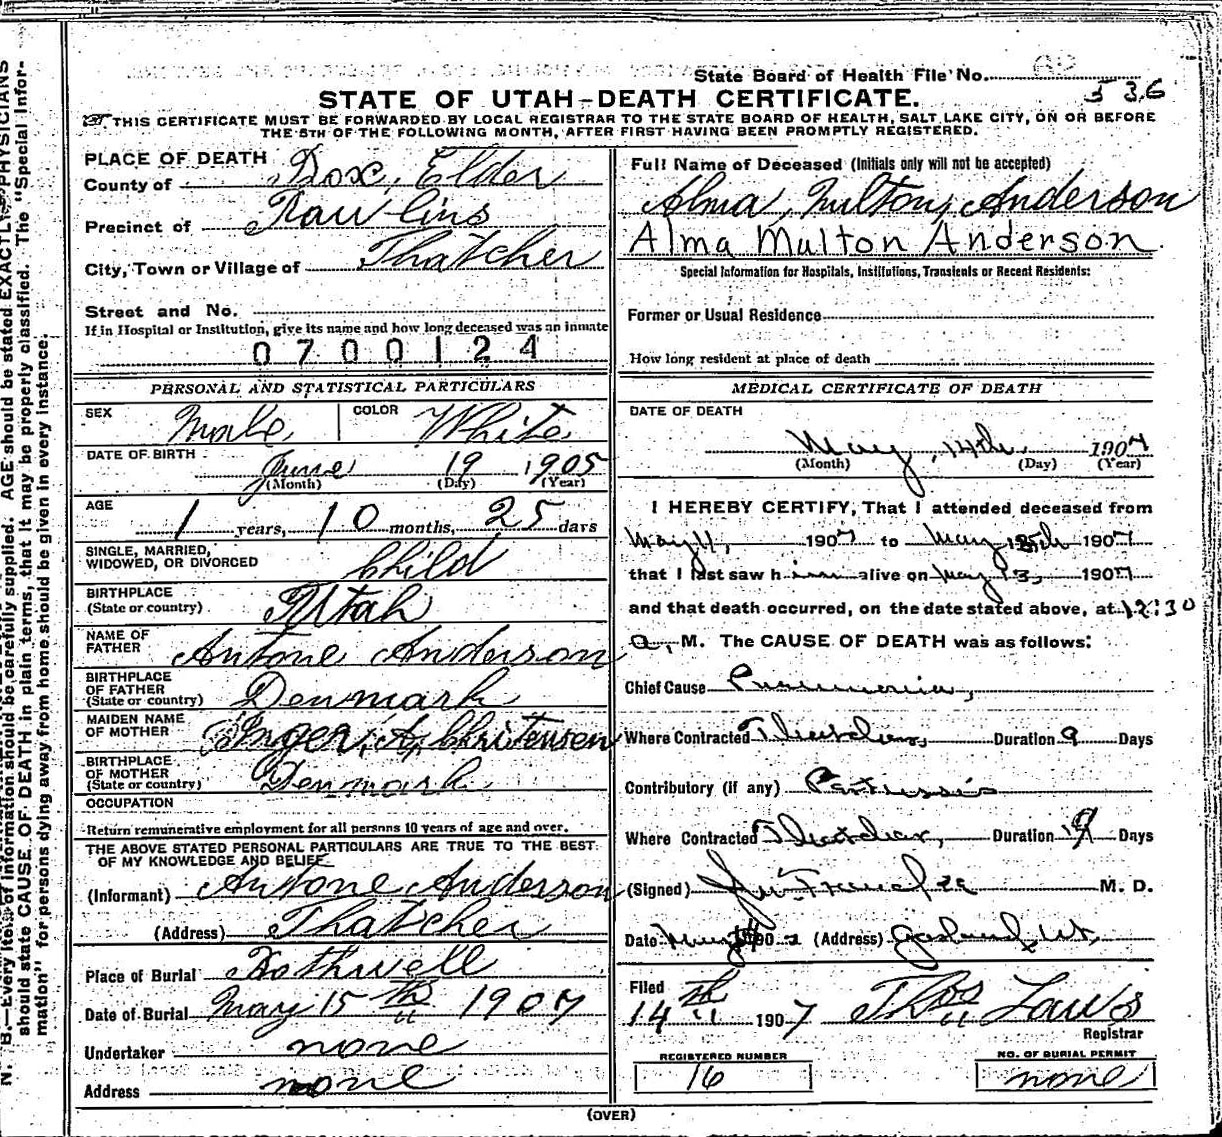 State Board of Health File No. 536
STATE OF UTAH—DEATH CERTIFICATE.
THIS CERTIFICATE MUST BE FORWARDED BY LOCAL REGISTRAR TO THE STATE BOARD OF HEALTH, SALT LAKE CITY, ON OR BEFORE
THE 5TH OF THE FOLLOWING MONTH, AFTER FIRST HAVING BEEN PROMPTLY REGISTERED.
PLACE OF DEATH
County of Box Elder
Precinct of Rawlins
City, Town or Village of Thatcher
Street and No.
If in Hospital or Institution, give its name and how long deceased was an inmate
0700124
Full Name of Deceased (Initials only will not be accepted)
Alma Multon Anderson
Alma Multon Anderson
Special Information for Hospitals, Institutions, Transients or Recent Residents:
Former or Usual Residence
How long resident at place of death
PERSONAL AND STATISTICAL PARTICULARS
SEX Male COLOR White
DATE OF BIRTH June 19 1905
(Month) (Day) (Year)
AGE 1 years, 10 months, 25 days
SINGLE, MARRIED,
WIDOWED, OR DIVORCED Child
BIRTHPLACE
(State or country) Utah
NAME OF
FATHER Antone Anderson
BIRTHPLACE
OF FATHER
(State or country) Denmark
MAIDEN NAME
OF MOTHER Inger A. Christensen
BIRTHPLACE
OF MOTHER
(State or country) Denmark
OCCUPATION
Return remunerative employment for all persons 10 years of age and over.
THE ABOVE STATED PERSONAL PARTICULARS ARE TRUE TO THE BEST
OF MY KNOWLEDGE AND BELIEF
(Informant) Antone Anderson
(Address) Thatcher
Place of Burial Bothwell
Date of Burial May 15th 1907
Undertaker none
Address none
MEDICAL CERTIFICATE OF DEATH
DATE OF DEATH
May, 14th, 1907
(Month) (Day) (Year)
I HEREBY CERTIFY, That I attended deceased from
May 11, 1907 to May 1907
that I last saw him alive on May 13, 1907
and that death occurred, on the date stated above, at 12:30
a. M. The CAUSE OF DEATH was as follows:
Chief Cause Pneumonia,
Where Contracted Thatcher, Duration 9 Days
Contributory (if any) Pertussis
Where Contracted Thatcher, Duration Days
(Signed) M. D.
Date May 190 (Address) Garland, Ut.
Filed
14th 1907 Thos Laws
Registrar
REGISTERED NUMBER
16
NO. OF BURIAL PERMIT
none
(OVER)
N. B.—Every item of information should be carefully supplied. AGE should be stated EXACTLY. PHYSICIANS
should state CAUSE OF DEATH in plain terms, that it may be properly classified. The "Special Infor-
mation" for persons dying away from home should be given in every instance.